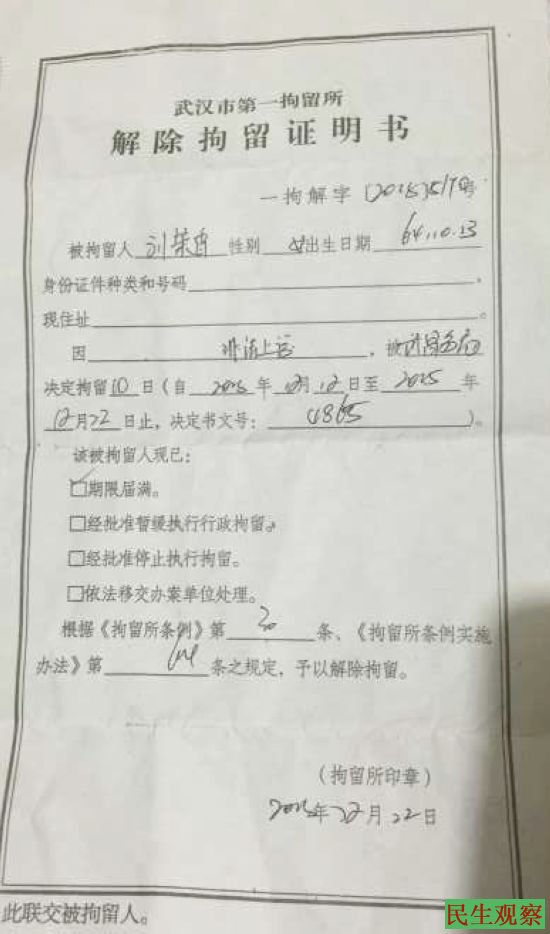 武汉市第一拘留所
解除拘留证明书
一拘解字(2015)5179号
被拘留人 刘 性别 女 出生日期 64.10.23
身份证件种类和号码 ,
现住址 。
因 非法上访 , 被 分局
决定拘留 10 日(自 2015 年 12 月 12 日至 2015 年
12 月 22 日止,决定书文号: 4865 )。
该被拘留人现已:
☑期限届满。
□经批准暂缓执行行政拘留。
□经批准停止执行拘留。
□依法移交办案单位处理。
根据《拘留所条例》第 30 条、《拘留所条例实施
办法》第 条之规定,予以解除拘留。
(拘留所印章)
2015年12月22日
此联交被拘留人。
民生观察